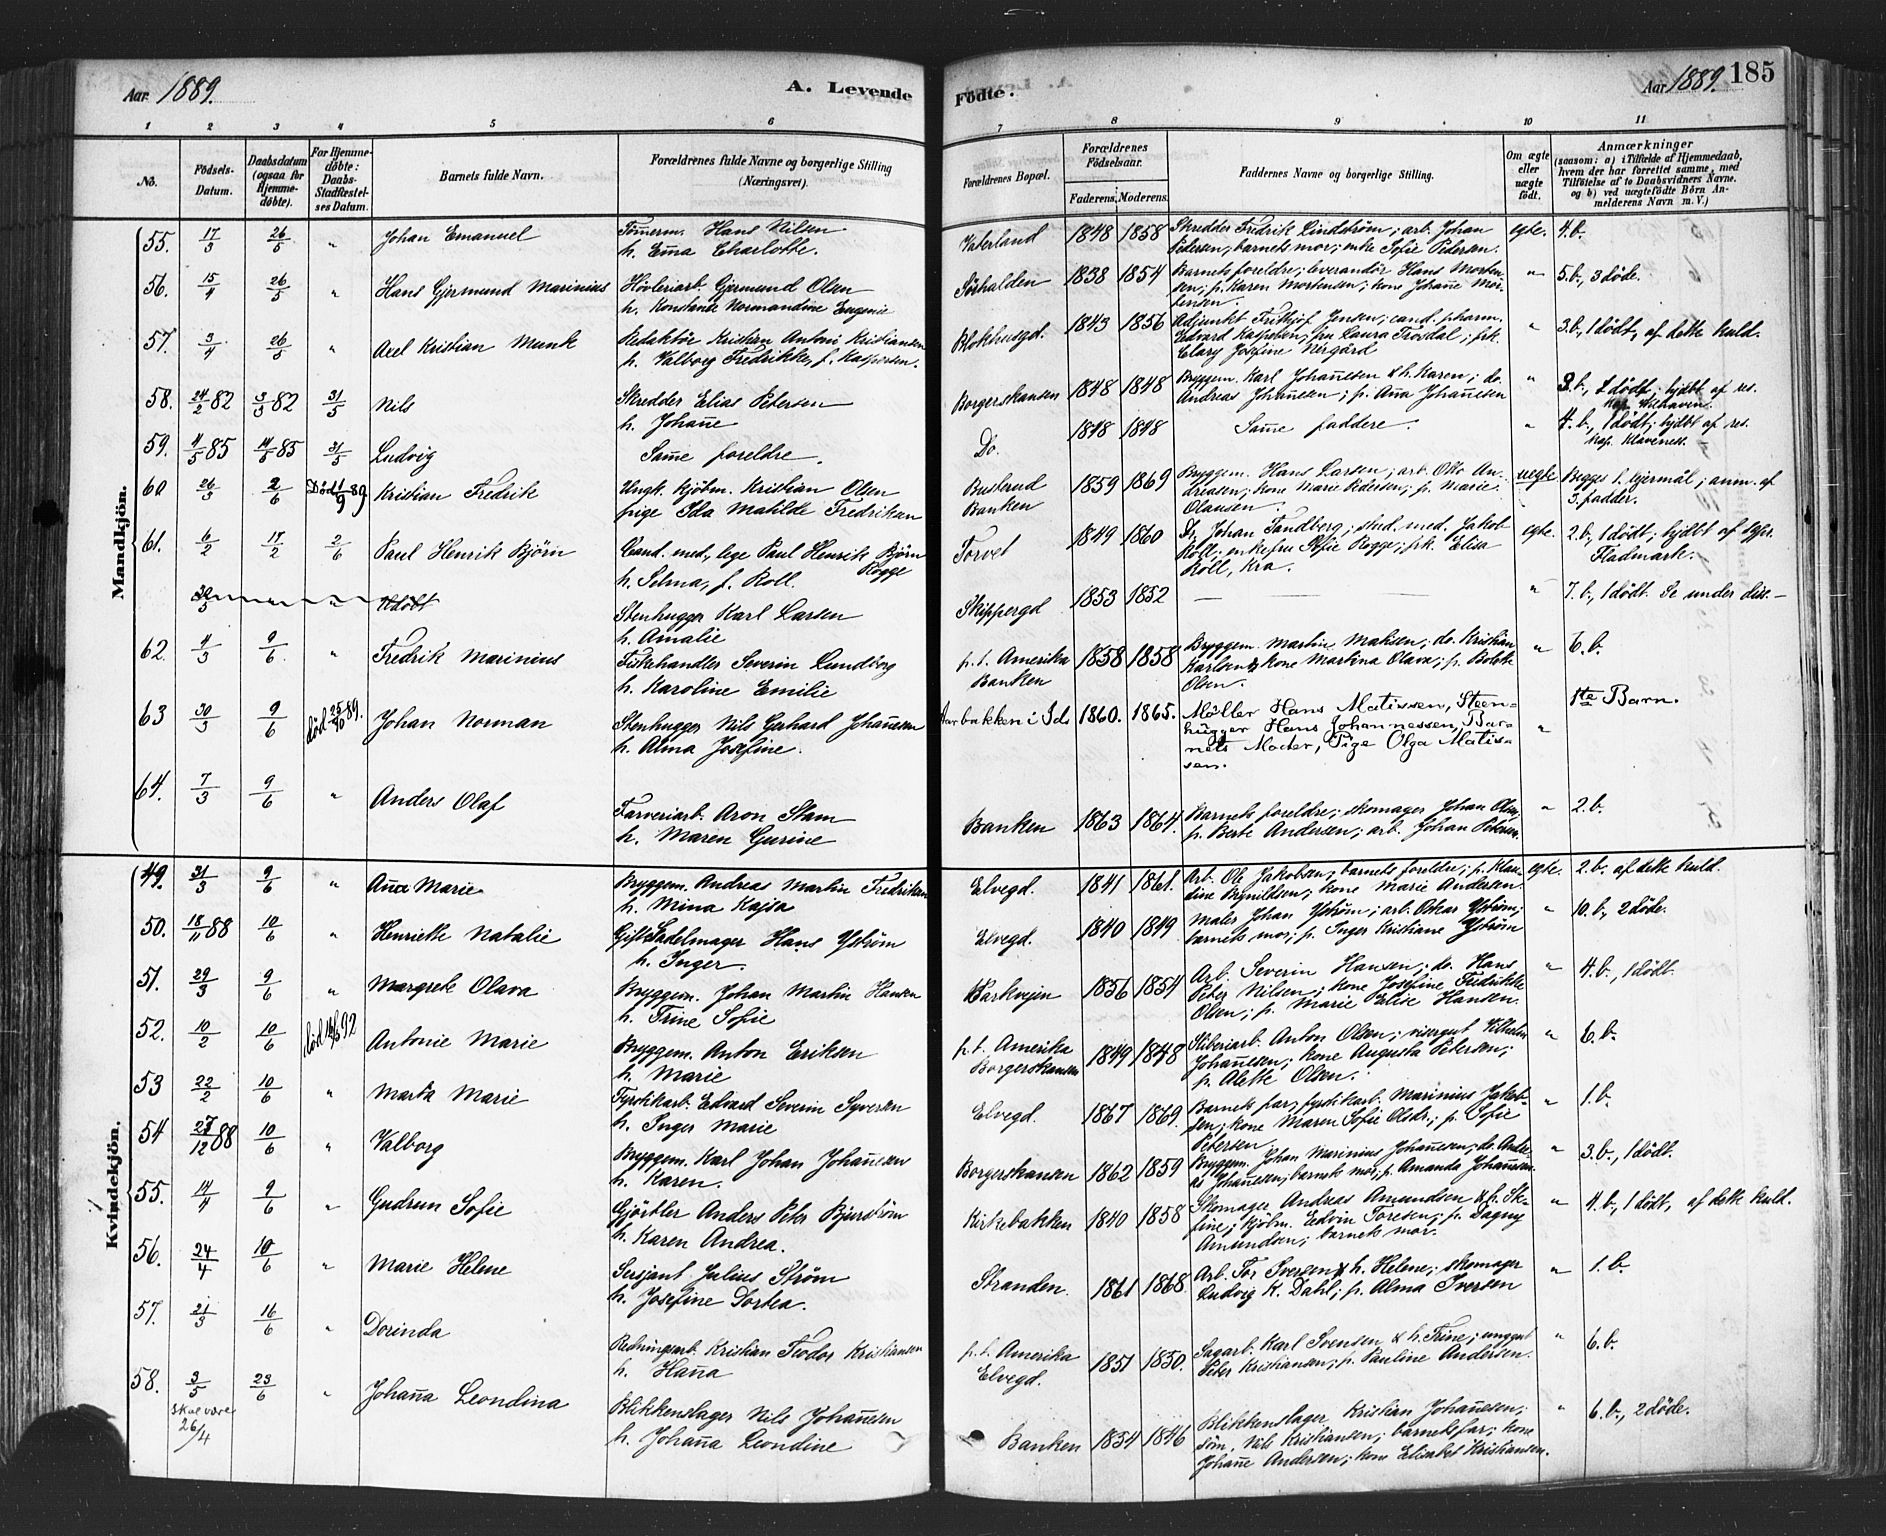 Aar 1889. A. Levende
Födte. Aar 1889. 185
1 2 3 4 5 6 7 8 9 10 11
No.
Födsels-
Datum.
Daabsdatum
(ogsaa for
Hjemme-
döbte).
For Hjemme-
döbte:
Daabs-
Stadfæstel-
ses Datum.
Barnets fulde Navn.
Forældrenes fulde Navne og borgerlige Stilling
(Næringsvei).
Forældrenes Bopæl.
Forældrenes
Födselsaar.
Faderens. Moderens.
Faddernes Navne og borgerlige Stilling.
Om ægte
eller
uægte
födt.
Anmærkninger
(saasom: a) i Tilfælde af Hjemmedaab,
hvem der har forrettet samme, med
Tilföielse af to Daabsvidners Navne.
og b) ved uægtefödte Börn An-
melderens Navn m. V.)
Mandkjön.
55. 17/3 26/5 " Johan Emanuel
Tömerm. Hans Nilsen
h. Ema Charlotte.
Vaterland 1848 1858
Skredder Fredrik Lindström; arb. Johan
Petersen; barnets mor; enke Sofie Petersen.
egte. 4. b.
56. 15/4 26/5 " Hans Gjermund Marinius
Hövleriarb. Germund Olsen
h. Konstance Normandine Eugenie
Sörhalden 1838 1854
Barnets foreldre; leverandör Hans Morten-
sen; p. Karen Mortensen; kone Johanne Mor-
tensen.
" 5. b., 3 döde.
57. 3/4 26/5 " Axel Kristian Munk
Redaktör Kristian Antoni Kristiansen
h. Valborg Fredrikke, f. Kaspersen.
Blokhusgd. 1843 1856
Adjunkt Fritjof Jensen; cand. pharm.
Edvard Kaspersen; fru Laura Trosdal; frk.
Clary Josefine Nirgård
" 3. b., 1 dödt, af dette kuld.
58. 24/2 82 3/3 82 31/5 Nils
Skredder Elias Petersen
h. Johane
Borgerskansen 1848 1848
Bryggem. Karl Johanesen & h. Karen; do.
Andreas Johanesen; p. Ana Johanesen
" 3. b., 1 dödt; hjdbt af res.
kap. Klaven.
59. 4/5 85 14/5 85 31/5 Ludvig
Same foreldre.
Do. 1848 1848
Same faddere.
" 4. b., 1 dödt; hjdbt af res.
kap. Klavenes.
60 26/3 2/6 Död 1/9 89 Kristian Fredrik
Ungk. kjöbm. Kristian Olsen
pige Ida Matilde Fredriksen
Busterud
Banken 1859 1869
Bryggem. Hans Larsen; arb. Otto An-
dreasen; kone Marie Pedersen; p. Marie
Olausen.
uegte Begges 1. lejermål; anm. af
3. fadder.
61. 6/2 17/2 2/6 Paul Henrik Björn
Cand. med., lege Paul Henrik Björn
Rogge
h. Selma, f. Roll.
Torvet 1849 1860
Dr. Johan Tandberg; stud. med. Jakob
Roll; enkefru Sofie Rogge; frk. Elisa
Roll, Kra.
egte. 2. b., 1 dödt; hjdbt af spr.
Fladmark.
30/5 " " Udöbt
Stenhugger Karl Larsen
h. Amalie
Skippergd 1853 1852
" 7. b., 1 dödt. Se under diss.
62. 4/3 9/6 " Fredrik Marinius
Fiskehandler Severin Lundborg
h. Karoline Emilie
p. t. Amerika
Banken 1858 1858
Bryggem. Martin Matisen; do. Kristian
Karlsen & kone Martina Olava; p. Bolette
Olsen.
" 6. b.
63 30/3 9/6 död 25/10 89. Johan Norman
Stenhugger Nils Gerhard Johanesen
h. Alma Josefine.
Aarbakken i Ids 1860. 1865.
Møller Hans Matissen, Steen-
hugger Hans Johannessen, Bar-
nets Moder, Pige Olga Matis-
sen.
" 1ste Barn.
64. 7/3 9/6 " Anders Olaf
Farveriarb. Aron Stam
h. Maren Gurine
Banken 1863 1864.
Barnets foreldre; skomager Johan Olsen;
p. Berte Andersen; arb. Johan Petersen.
" 2. b.
Kvindekjön.
49. 31/3 9/6 " Ana Marie
Bryggem. Andreas Martin Fredriksen
h. Mina Kajsa
Elvegd. 1841 1861.
Arb. Ole Jakobsen, barnets foreldre; p. Klau-
dine Brynildsen; kone Marie Andersen.
egte. 2. b. af dette kuld.
50. 18/11 88 10/6 " Henriette Natalie
Gift Sadelmager Hans Yström
h. Inger.
Elvegd. 1840 1849
Maler Johan Yström; arb. Oskar Yström;
barnets mor; p. Inger Kristiane Yström
" 10. b., 2 döde.
51. 29/3 9/6 " Margrete Olava
Bryggem. Johan Martin Hansen
h. Trine Sofie
Barkvejen 1856 1854
Arb. Severin Hansen; do. Hans
Peter Nilsen; kone Josefine Fredrikke
Olsen; p. Marie Elise Hansen.
" 4. b., 1 dödt.
52. 10/2 10/6 Antonie Marie
Bryggem. Anton Eriksen
h. Marie
p. t. Amerika
Borgerskansen 1849 1848
Sliberiarb. Anton Olsen; visergut Vilhelm
Johanesen; kone Augusta Petersen;
p. Alette Olsen.
" 6. b.
53 22/2 10/6 " Marta Marie
Fyrstikkarb. Edvard Severin Syversen
h. Inger Marie
Elvegd. 1867 1869.
Barnets far, fyrstikarb. Marinius Jakob-
sen; kone Maren Sofie Olsdr.; p. Sofie
Petersen.
" 1. b.
54 27/12 88 10/6 " Valborg
Bryggem. Karl Johan Johanesen
h. Karen.
Borgerskansen 1862 1859
Bryggem. Johan Marinius Johanesen; do. Andre-
as Johanesen; barnets mor; p. Amanda Johansen.
" 3. b., 1 dödt.
55. 14/4 9/6 " Gudrun Sofie
Gjörtler Anders Peter Bjurström
h. Karen Andrea.
Kirkebakken 1840 1858
Skomager Andreas Amundsen & h. Se-
fine; kjöbm. Edvin Toresen; p. Dagny
Amundsen; barnets mor.
" 4. b., 1 dödt, af dette kuld.
56. 24/4 10/6 " Marie Helene
Sersjant Julius Ström
h. Josefine Dortea.
Stranden. 1861 1868.
Arb. Tor Iversen & h. Helene; skomager
Ludvig K. Dahl; p. Alma Iversen
" 1. b.
57. 21/3 16/6 " Dorinda
Redningsarb. Kristian Teodor Kristiansen
h. Hana
p. t. Amerika
Elvegd. 1851 1850.
Sagarb. Karl Svensen & h. Trine; unggut
Peter Kristiansen; p. Pauline Andersen.
" 6. b.
58. 3/5 23/6 " Johana Leondina
skal være
26/4
Blikkenslager Nils Johanesen
h. Johana Leondine
Banken 1854 1846
Blikkenslager Kristian Johanesen;
söm. Nils Kristiansen; barnets far; kone
Johane Andersen; kone Elisabet Kristiansen.
" 6. b., 2 döde.